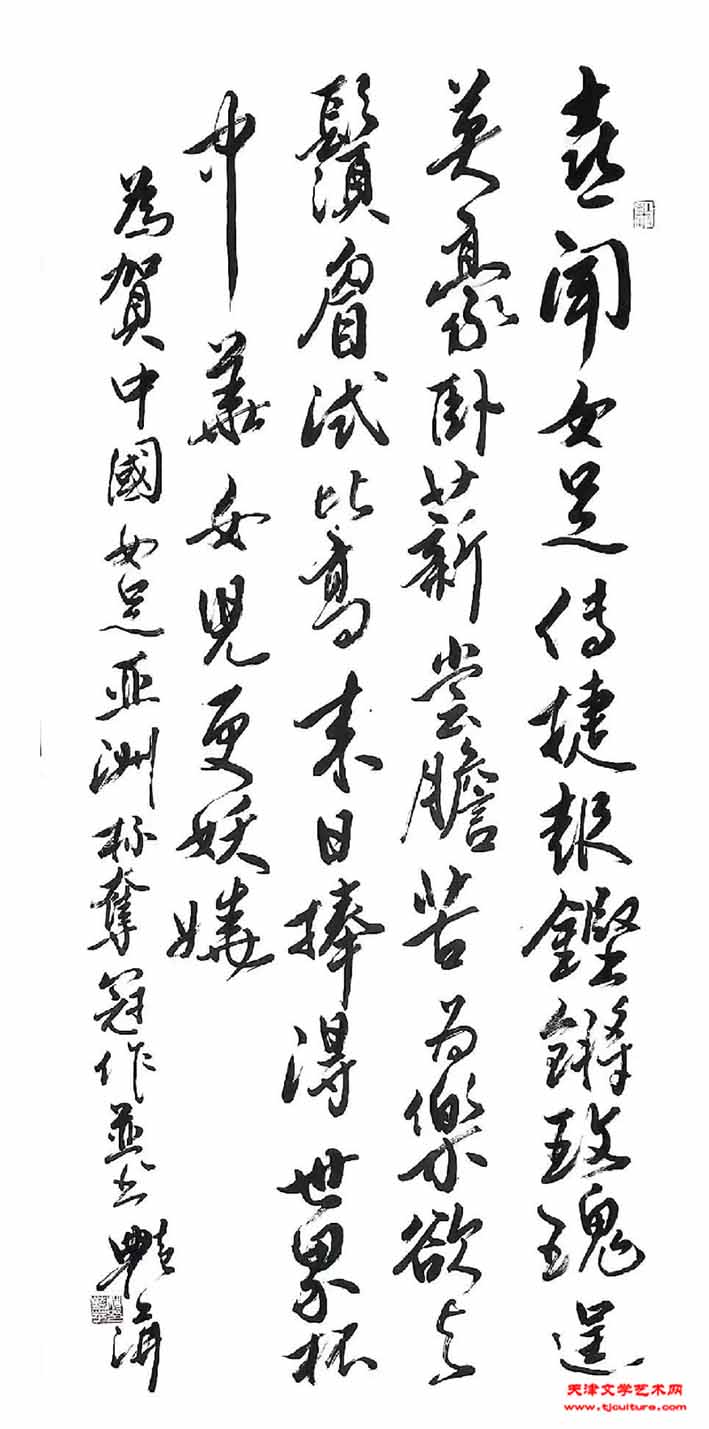 喜闻女足传捷报鏗鏘玫瑰逞
英豪卧薪尝膽苦为樂欲与
鬚眉试比高来日捧得世界杯
中華女兒更妖嬈
為賀中國女足亚洲杯奪冠作並书
天津文学艺术网
www.tjculture.com